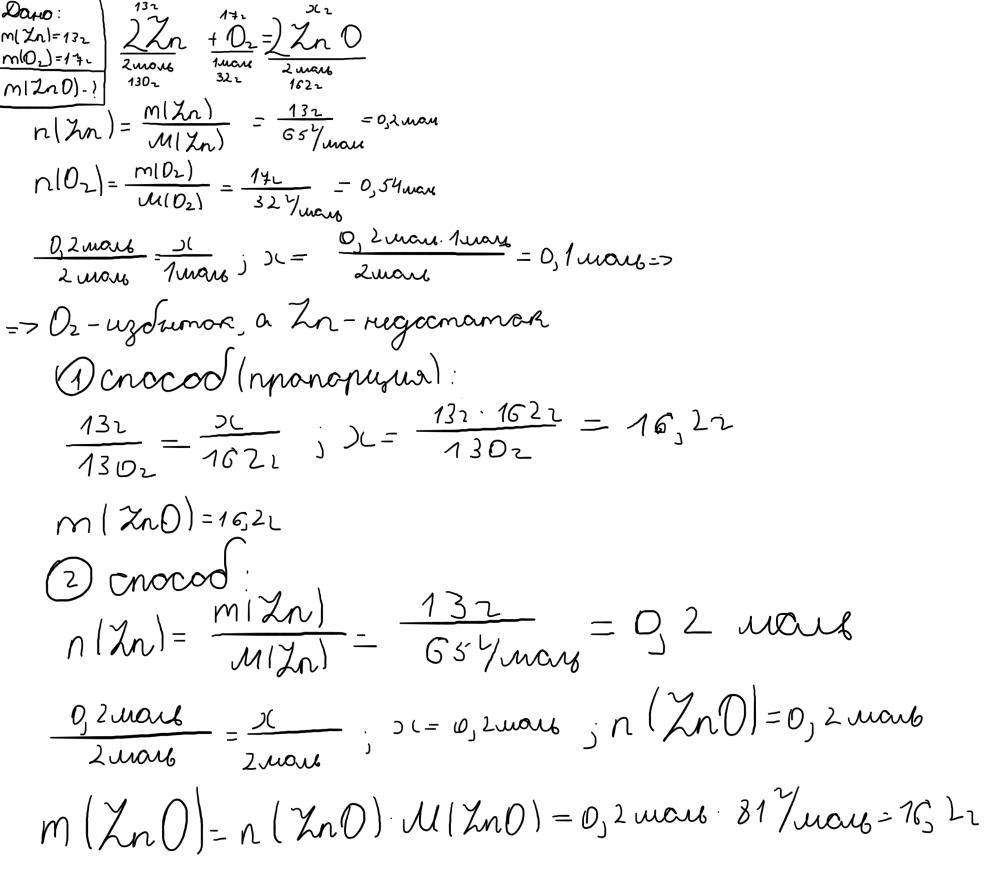 Дано:
m(Zn)=13г
m(O₂)=17г
m(ZnO)-?
13г 17г xг
2Zn + O₂ = 2ZnO
2моль 1моль 2моль
130г 32г 162г
n(Zn) = m(Zn)/M(Zn) = 13г/65г/мол = 0,2мол
n(O₂) = m(O₂)/M(O₂) = 17г/32г/моль = 0,54мол
0,2моль/2моль = x/1моль ; x = 0,2мол·1моль/2моль = 0,1моль =>
=> O₂ - избыток, а Zn - недостаток
① способ (прапорция):
13г/130г = x/162г ; x = 13г·162г/130г = 16,2г
m(ZnO) = 16,2г
② способ:
n(Zn) = m(Zn)/M(Zn) = 13г/65г/мол = 0,2 моль
0,2моль/2моль = x/2моль ; x = 0,2моль ; n(ZnO) = 0,2моль
m(ZnO) = n(ZnO)·M(ZnO) = 0,2моль·81г/моль = 16,2г